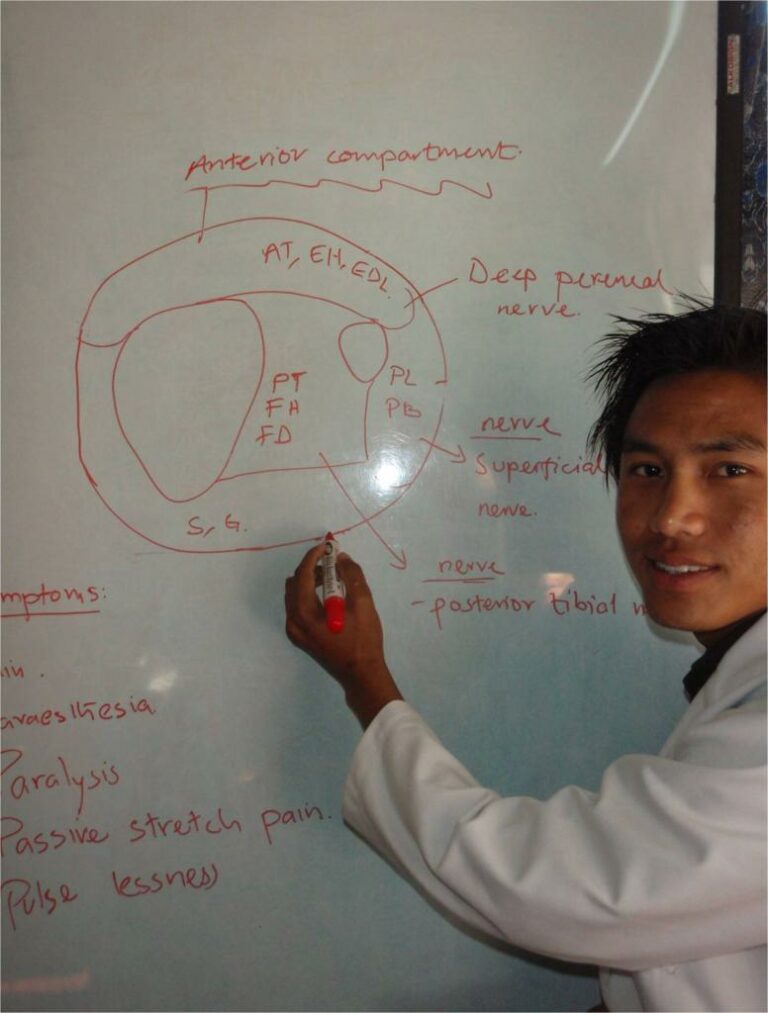 Anterior compartment.
AT, EH, EDL.
Deep peroneal
nerve.
PT
FH
FD
PL
PB
nerve
Superficial
nerve.
S, G.
nerve
- posterior tibial n
mptoms:
in.
araesthesia
Paralysis
Passive stretch pain.
Pulse lessness